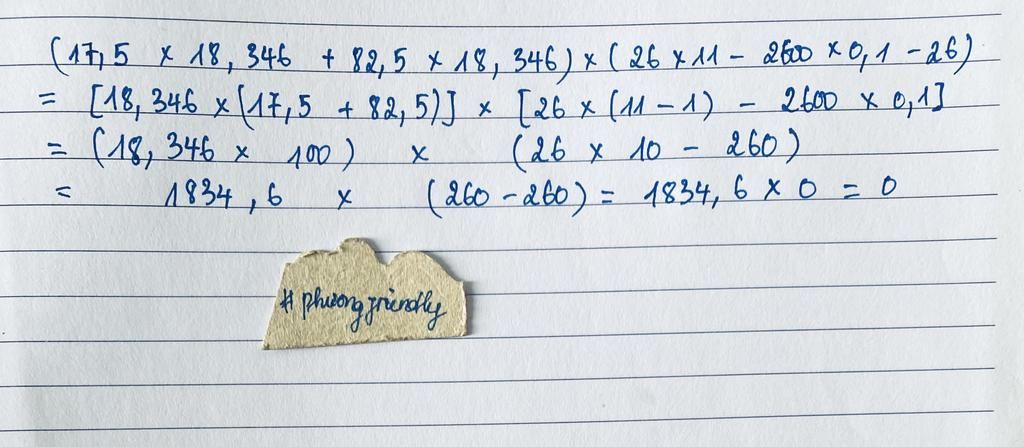 (17,5 × 18,346 + 82,5 × 18,346) × (26 × 11 - 2600 × 0,1 - 26)
= [18,346 × (17,5 + 82,5)] × [26 × (11 - 1) - 2600 × 0,1]
= (18,346 × 100) × (26 × 10 - 260)
= 1834,6 × (260 - 260) = 1834,6 × 0 = 0
# phuongfriendly